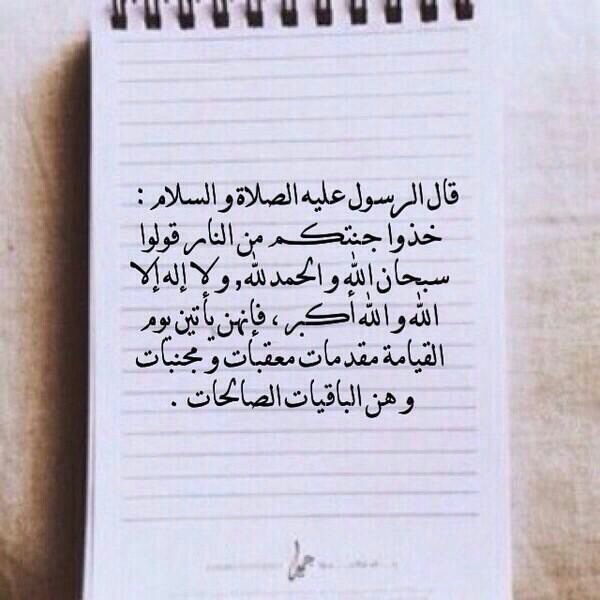 قال الرسول عليه الصلاة و السلام :
خذوا جنتكم من النار قولوا
سبحان الله و الحمد لله, و لا إله إلا
الله و الله أكبر ، فإنهن يأتين يوم
القيامة مقدمات معقبات و مجنبات
و هن الباقيات الصالحات .